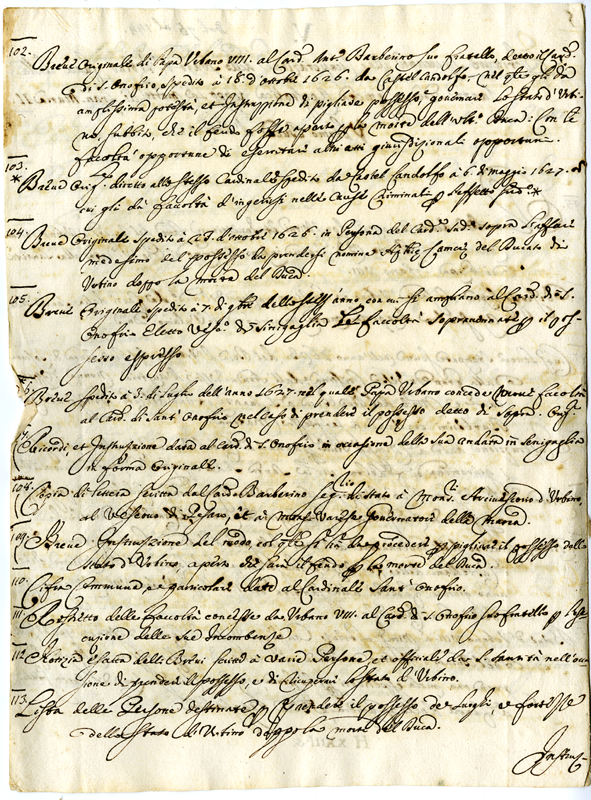 102. Breve Originale di Papa Urbano VIII. al Card. Ant.º Barberino suo fratello, detto il Card.
di S. Onofrio, spedito à 18 d'ottobre 1626. da Castel Gandolfo, nel q̃le gli dà
amplissima potestà, et Instruzzione di pigliare possesso, e governare lo stato d'Urbi-
no subito, che il feudo fosse aperto p la morte dell' Duca: Con le
facoltà opportune di esercitare altri atti giurisdizionali opportuni.
103. Breve Orig. diretto allo stesso Cardinale spedito da Castel Gandolfo à 6. di maggio 1627. in
* cui gli dà facoltà d'ingerirsi nelle Cause Criminali p l'effetto sud.º *
104. Breve Originale spedito à 28. d'ottobre 1626. in Persona del Card. sud.º sopra
medesimo del possesso da prendersi nomine Camere del Ducato di
Urbino doppo la morte del Duca.
105. Breve Originale spedito à 7. di dello stess' anno con cui si ampliano al Card. di S.
Onofrio Eletto Vesc.º di Sinigaglia le facoltà sopranominate p il pos-
sesso espresso
Breve spedito à 3. di Luglio dell'anno 1627. nel quale Papa Urbano concede facoltà
al Card. di Sant' Onofrio nel caso di prendere il possesso detto di sopra. Orig.
Ricordi, et Instruzione data al Card. di S. Onofrio in occasione della sua andata in Senigaglia
in forma Originale.
108. Copia di lettera scritta dal Card. Barberino Seg.rio di stato à Mons.r Arcivescovo d'Urbino,
al Vescovo di Pesaro, et à Mons.r Varese Governatore della Marca.
109. Breve Instruzione del modo col q̃le si hà da procedere p pigliare il possesso dello
stato d'Urbino, aperto che sarà il feudo p la morte del Duca.
110. Cifra commune, e particolare data al Cardinale Sant' Onofrio.
111. Ristretto delle facoltà concesse da Urbano VIII. al Card. di S. Onofrio suo fratello p ese-
cuzione delle sue incombenze
112. Notizia esatta delli Brevi scritti à varie Persone et officiali da S. Santità nell'occa-
sione di prendere il possesso, e di lo stato d'Urbino.
113. Lista delle Persone destinate p prendere il possesso de Luoghi, e fortezze
dello stato di Urbino doppo la morte del Duca.
Instruz-